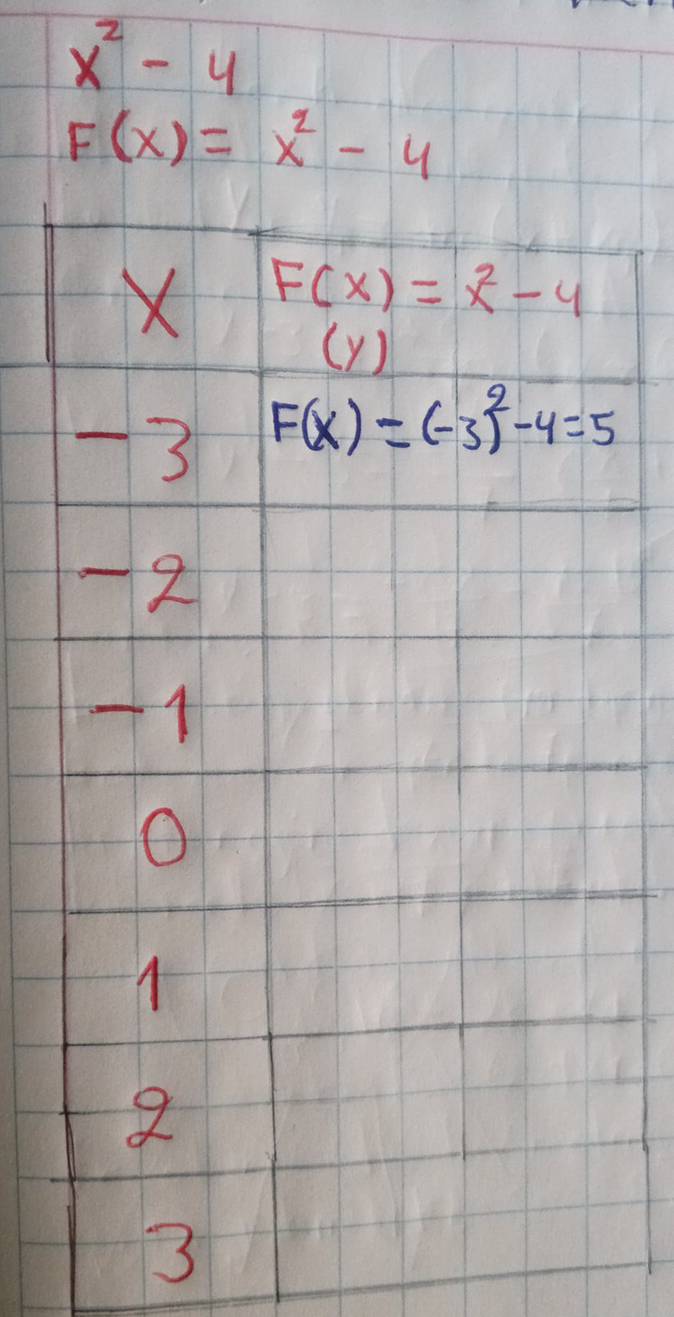 x² - 4
F(x) = x² - 4
X F(x) = x² - 4
(y)
-3 F(x) = (-3)² - 4 = 5
-2
-1
0
1
2
3